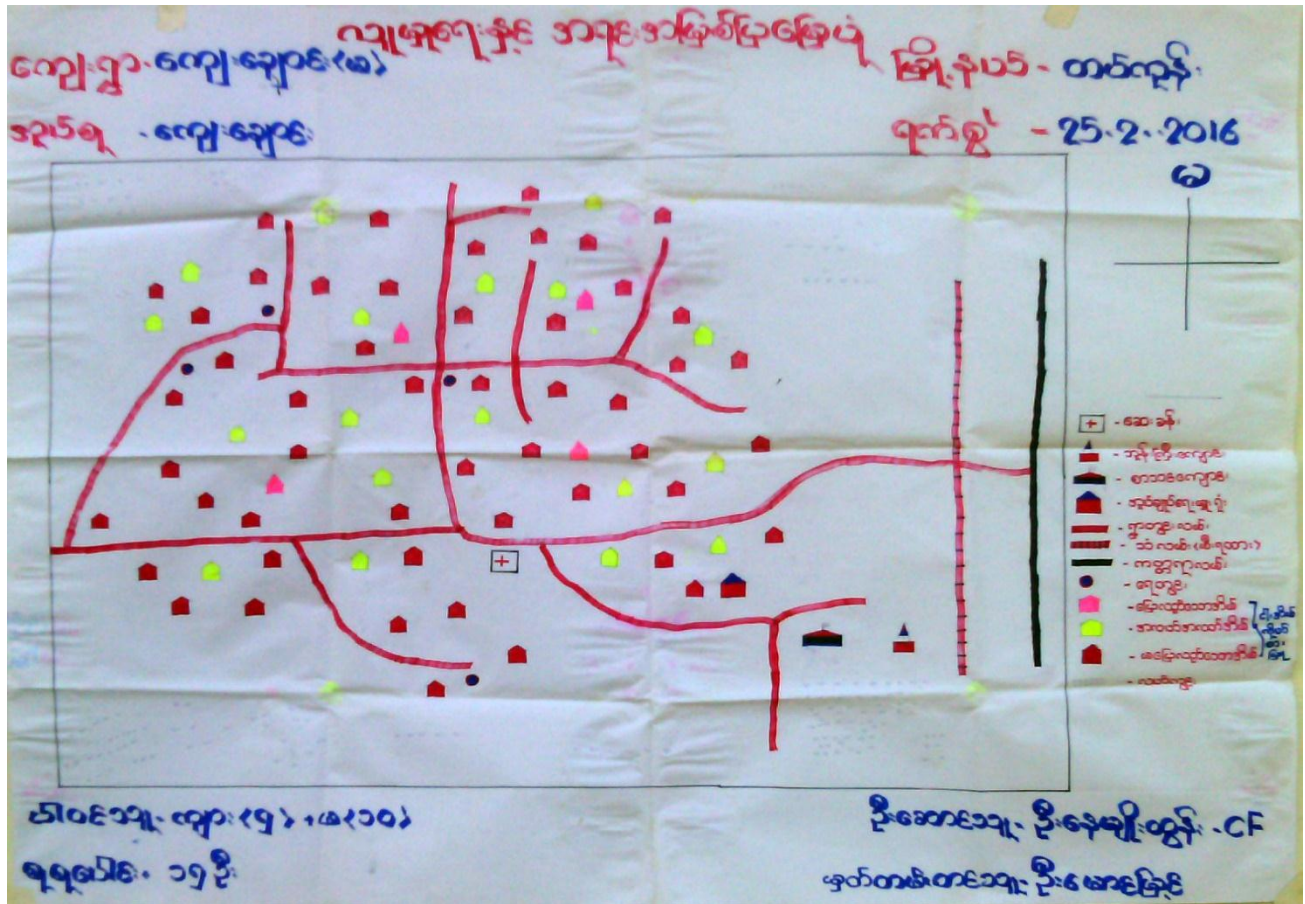 လူမှုရေးနှင့် အရင်းအမြစ်ပြမြေပုံ
ကျေးရွာ - ကျေးချောင်း(မ)
မြို့နယ် - တပ်ကုန်း
အုပ်စု - ကျေးချောင်း
ရက်စွဲ - 25.2.2016
မ
- ဆေးခန်း
- ဘုန်းကြီးကျောင်း
- စာသင်ကျောင်း
- အုပ်ချုပ်ရေးမှူးရုံး
- ရွာတွင်းလမ်း
- သံလမ်း (မီးရထား)
- ကတ္တရာလမ်း
- ရေတွင်း
- မြေလတ်သောအိမ်
- အလတ်အလတ်အိမ်
- လယ်ကွင်း
ပါဝင်သူ - ကျား(၅) + မ(၁၀)
စုစုပေါင်း - ၁၅ဦး
ဦးဆောင်သူ - ဦးနေမျိုးထွန်း - CF
မှတ်တမ်းတင်သူ - ဦးမောင်မြင့်